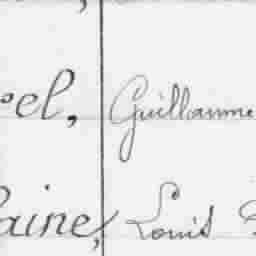 el, Guillaume
aine, Louis